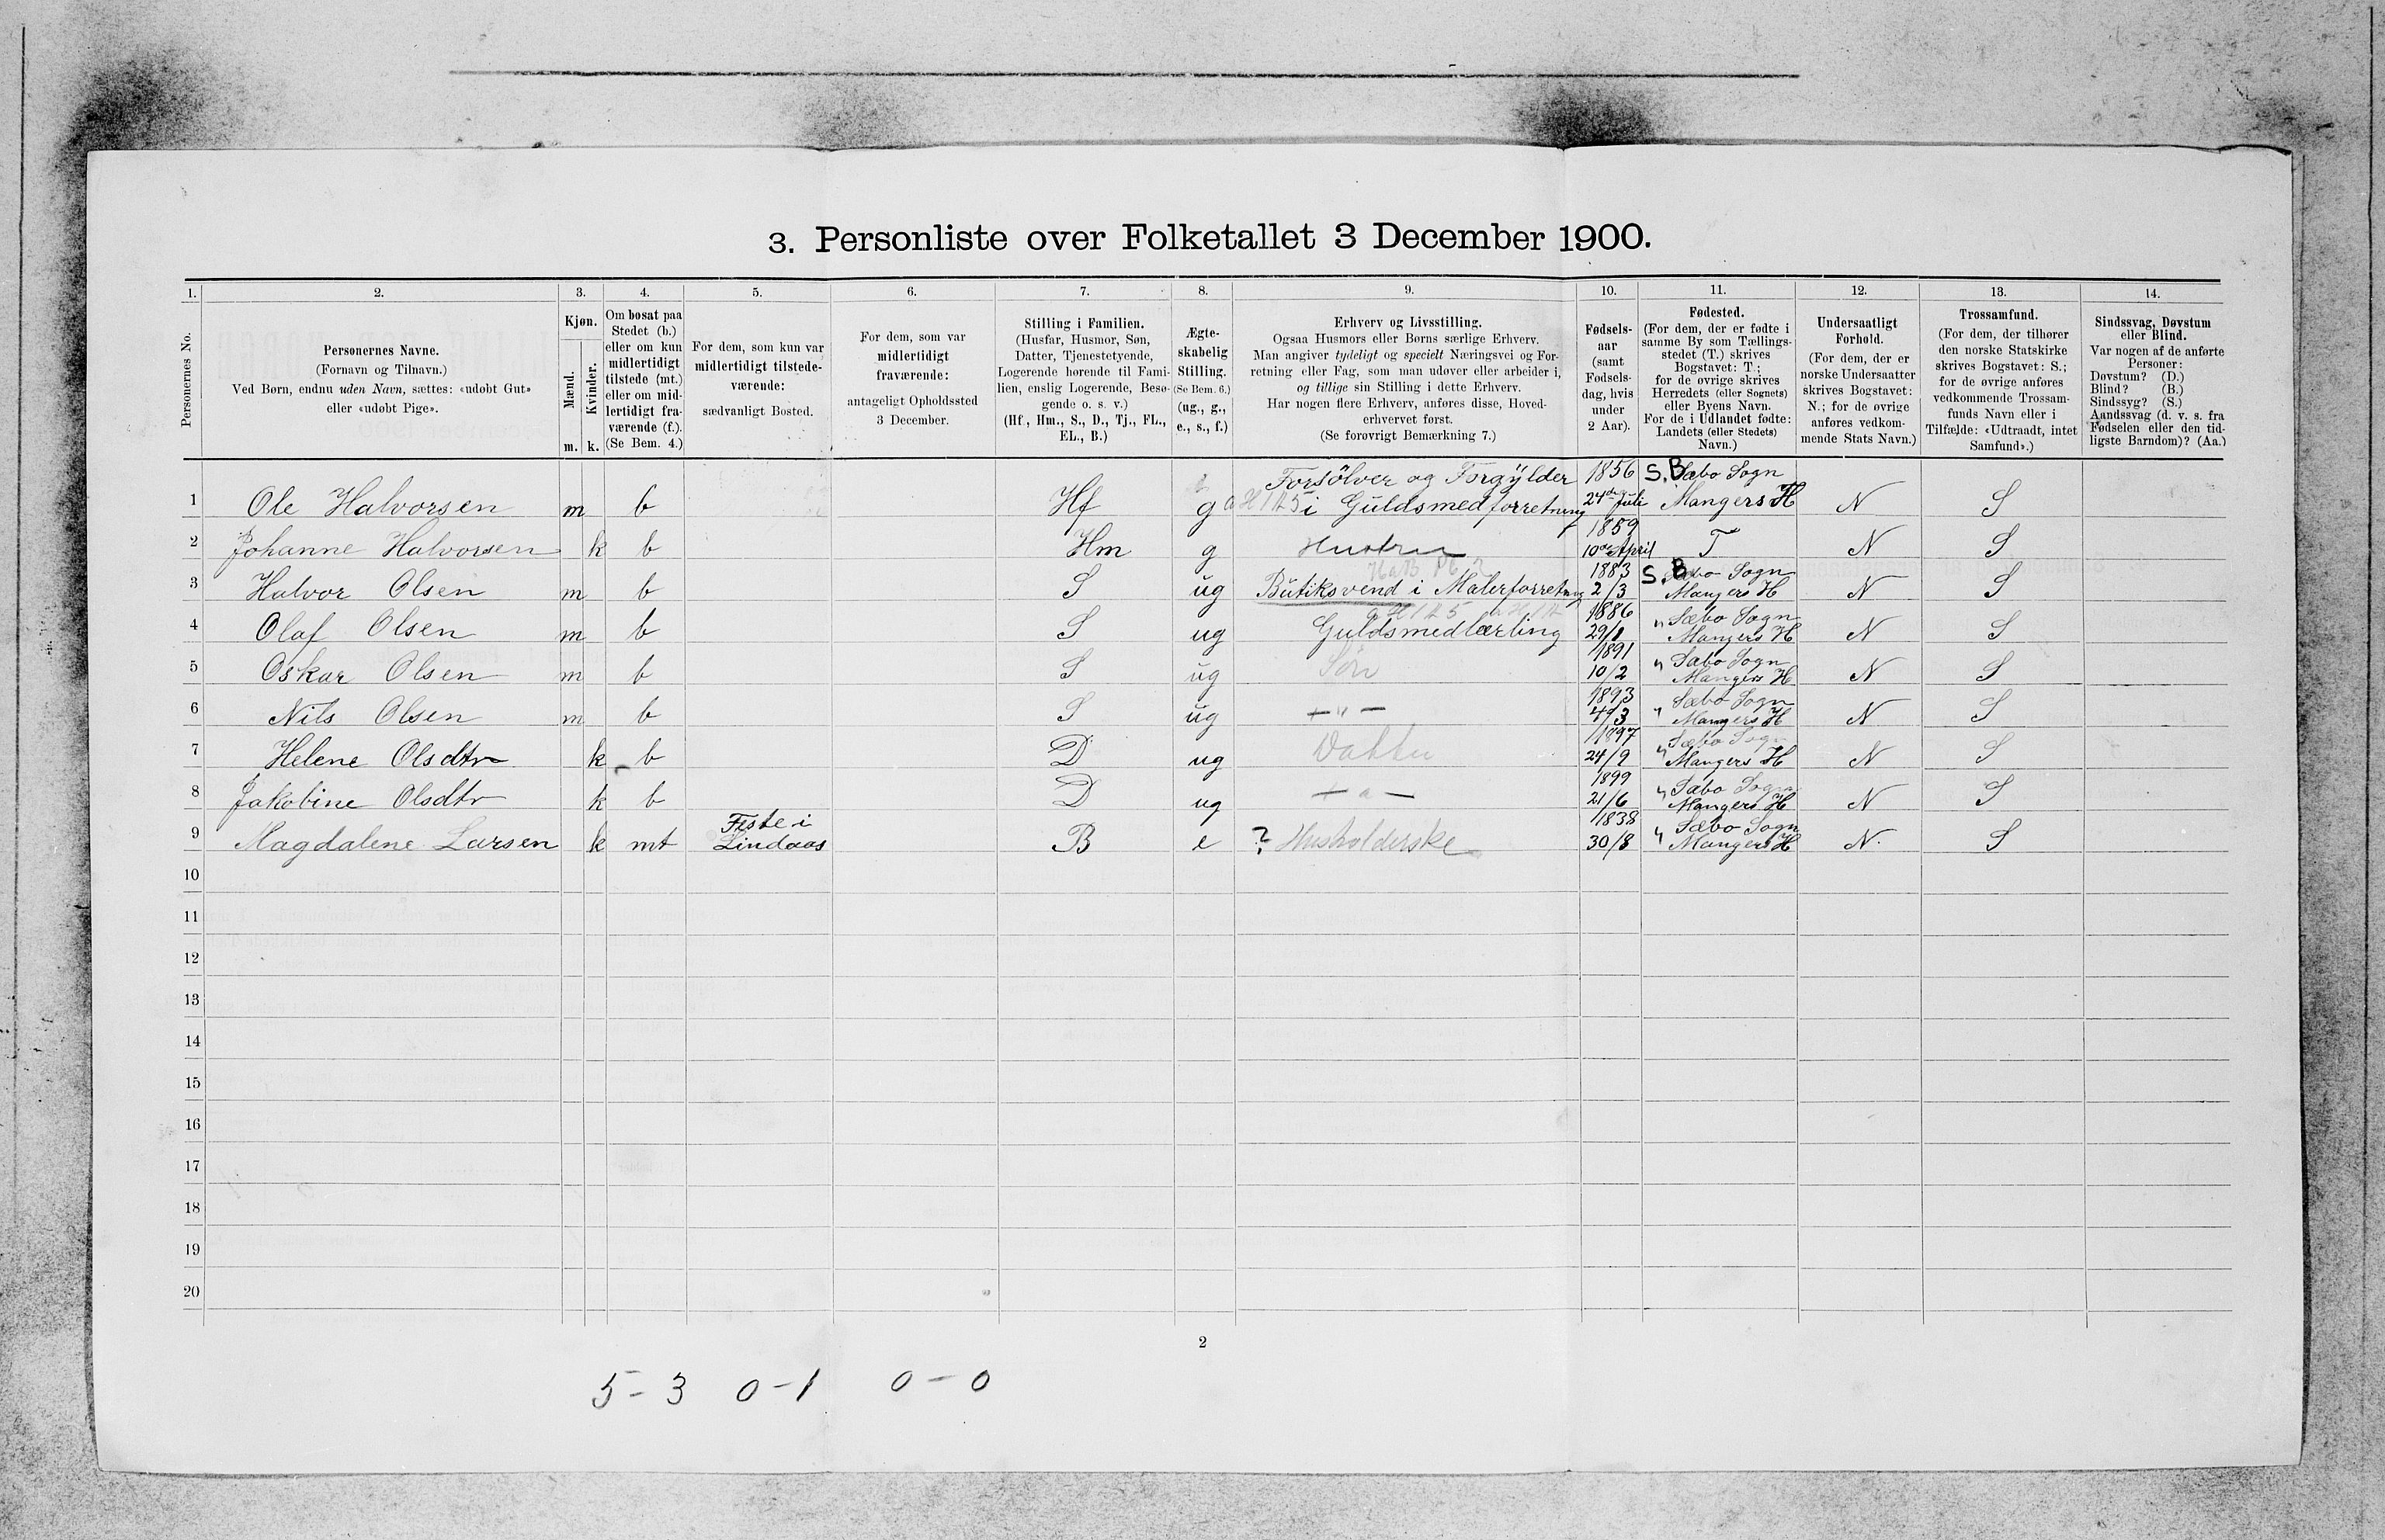 3. Personliste over Folketallet 3 December 1900.
1. 2. 3. 4. 5. 6. 7. 8. 9. 10. 11. 12. 13. 14.
Personernes No.
Personernes Navne.
(Fornavn og Tilnavn.)
Ved Børn, endnu uden Navn, sættes: «udøbt Gut»
eller «udøbt Pige».
Kjøn.
Mænd.
Kvinder.
m. k.
Om bosat paa
Stedet (b.)
eller om kun
midlertidigt
tilstede (mt.)
eller om mid-
lertidigt fra-
værende (f.).
(Se Bem. 4.)
For dem, som kun var
midlertidigt tilstede-
værende:
sædvanligt Bosted.
For dem, som var
midlertidigt
fraværende:
antageligt Opholdssted
3 December.
Stilling i Familien.
(Husfar, Husmor, Søn,
Datter, Tjenestetyende,
Logerende hørende til Fami-
lien, enslig Logerende, Besø-
gende o. s. v.)
(Hf., Hm., S., D., Tj., FL.,
EL., B.)
Ægte-
skabelig
Stilling.
(Se Bem. 6.)
(ug., g.,
e., s., f.)
Erhverv og Livsstilling.
Ogsaa Husmors eller Børns særlige Erhverv.
Man angiver tydeligt og specielt Næringsvei og For-
retning eller Fag, som man udøver eller arbeider i,
og tillige sin Stilling i dette Erhverv.
Har nogen flere Erhverv, anføres disse, Hoved-
erhvervet først.
(Se forøvrigt Bemærkning 7.)
Fødsels-
aar
(samt
Fødsels-
dag, hvis
under
2 Aar).
Fødested.
(For dem, der er fødte i
samme By som Tællings-
stedet (T.) skrives
Bogstavet: T.;
for de øvrige skrives
Herredets (eller Sognets)
eller Byens Navn.
For de i Udlandet fødte:
Landets (eller Stedets)
Navn.)
Undersaatligt
Forhold.
(For dem, der er
norske Undersaatter
skrives Bogstavet:
N.; for de øvrige
anføres vedkom-
mende Stats Navn.)
Trossamfund.
(For dem, der tilhører
den norske Statskirke
skrives Bogstavet: S.;
for de øvrige anføres
vedkommende Trossam-
funds Navn eller i
Tilfælde: «Udtraadt, intet
Samfund».)
Sindssvag, Døvstum
eller Blind.
Var nogen af de anførte
Personer:
Døvstum? (D.)
Blind? (B.)
Sindssyg? (S.)
Aandssvag (d. v. s. fra
Fødselen eller den tid-
ligste Barndom)? (Aa.)
Forsölver og Forgÿlder 1856 S.B Sæbo Sogn
1 Ole Halvorsen m b Hf g i Guldsmedforretning 24de Juli Mangers H N S
1859
2 Johanne Halvorsen k b Hm g Hustru 10de April T N S
1883 S.B Sæbo Sogn
3 Halvor Olsen m b S ug Butiksvend i Malerforretning 2/3 Mangers H N S
1886 " Sæbo Sogn
4 Olaf Olsen m b S ug Guldsmedlærling 29/1 Mangers H N S
1891 " Sæbo Sogn
5 Oskar Olsen m b S ug Sön 10/2 Mangers H N S
1893 " Sæbo Sogn
6 Nils Olsen m b S ug — " — 4/3 Mangers H N S
1897 " Sæbo Sogn
7 Helene Olsdtr k b D ug Datter 24/9 Mangers H N S
1899 " Sæbo Sogn
8 Jakobine Olsdtr k b D ug — " — 21/6 Mangers H N S
Feste i 1838 " Sæbo Sogn
9 Magdalene Larsen k mt Lindaas B e ? Husholderske 30/8 Mangers H N. S
10
11
12
13
14
15
16
17
18
19
20
2
5-3 0-1 0-0